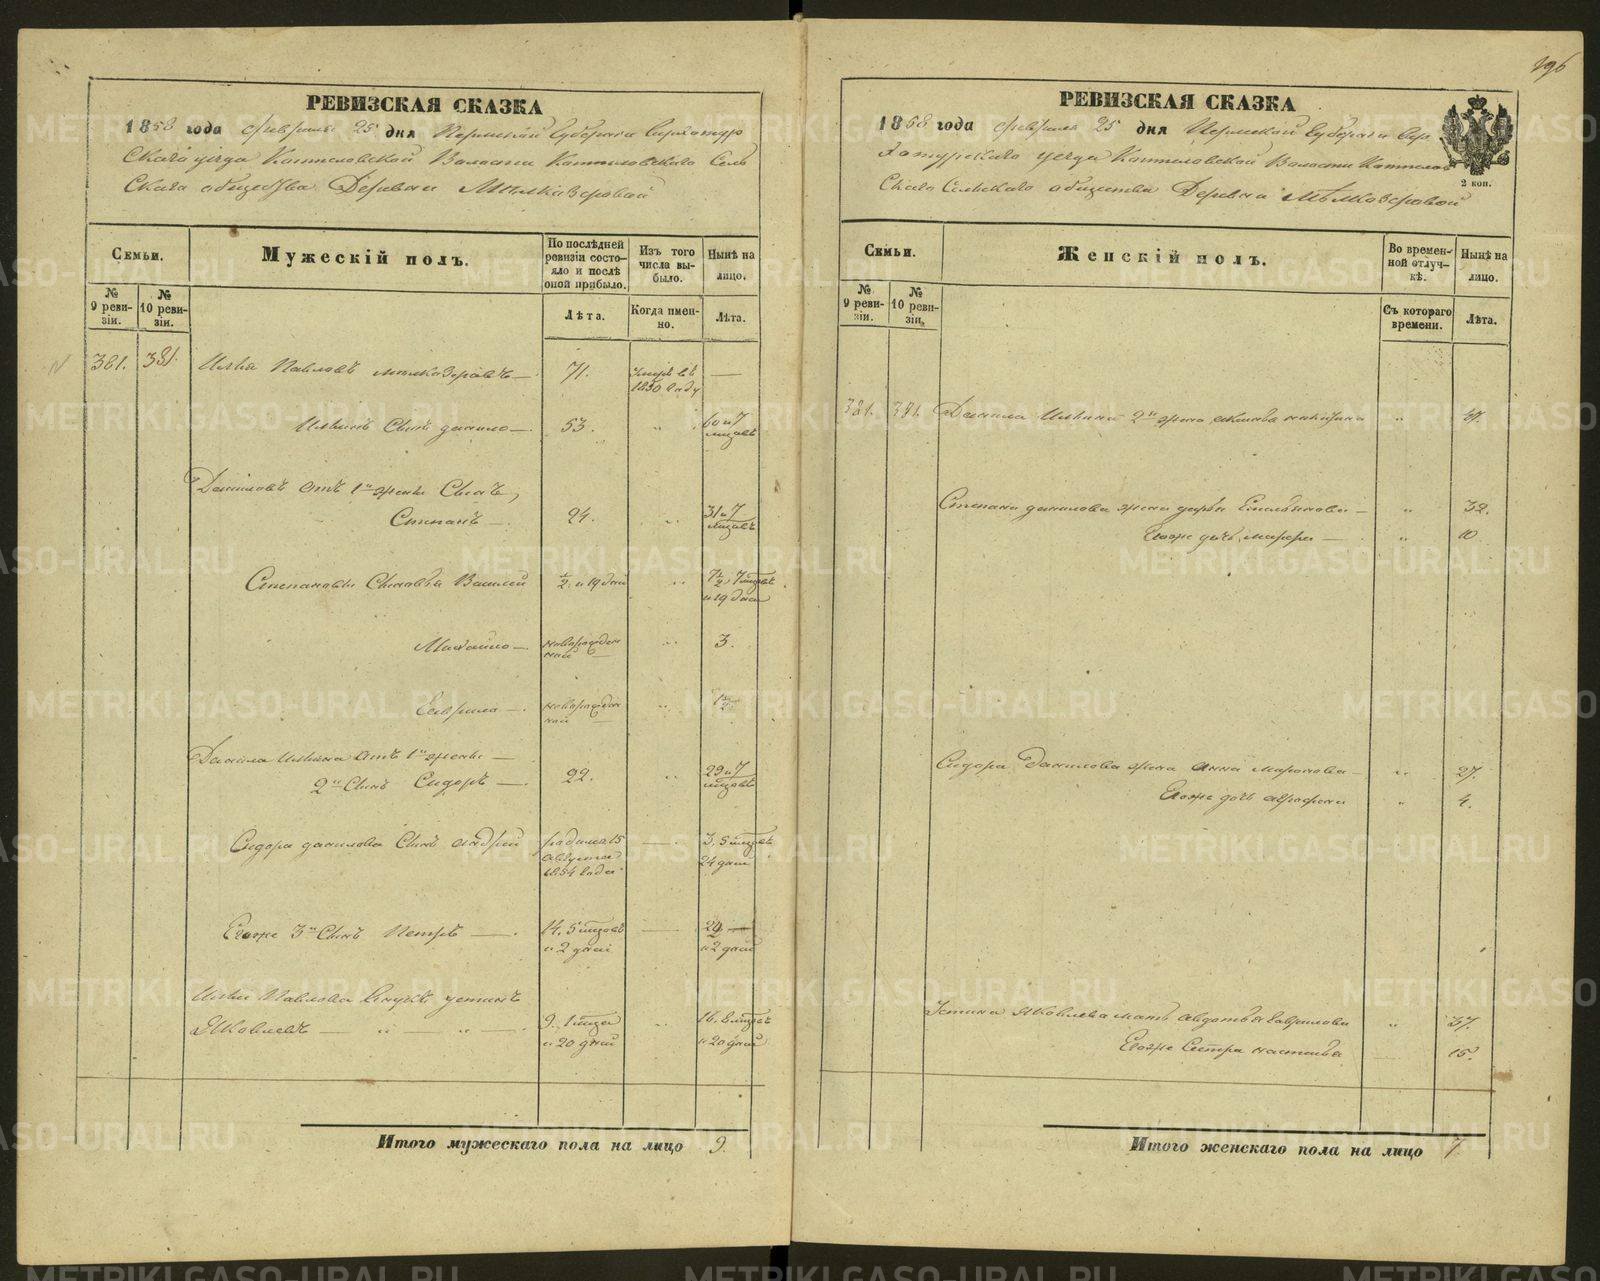 РЕВИЗСКАЯ СКАЗКА
1858 года февраля 25 дня Пермской Губернии Верхотур
скаго уезда Коптеловской Волости Коптеловскаго Сель
скаго общества Деревни Мелкозеровой
Семьи.
Мужескій полъ.
По послѣдней ревизіи состояло и послѣ оной прибыло.
Изъ того числа выбыло.
Нынѣ на лицо.
№ 9 ревизіи.
№ 10 ревизіи.
Лѣта.
Когда именно.
Лѣта.
381. 381. Илья Павловъ Мелкозеровъ — 71. умре въ 1850 году —
Ильинъ Сынъ Данило — 53. " 60 и 7 мцовъ
Даниловъ отъ 1й жены Сынъ,
Степанъ — 24. " 31 и 7 мцовъ
Степановы Сыновья Василей ½ и 19 дней " 7½, 7 мцовъ и 19 дней
— новорожденный " 3.
Гаврило — новорожденный " 1½
Данила Ильина отъ 1й жены —
2й Сынъ Сидоръ — 22. " 29 и 7 мцовъ
Сидора Данилова Сынъ Андрей родился 15 августа 1854 года — 3. 5 мцовъ 24 дней
Егоже 3й Сынъ Петръ — 14. 5 мцовъ и 2 дней — и 2 дней
Ильи Павлова внукъ Устинъ
Яковлевъ — " — " — 9. 1 мца и 20 дней " 16. 8 мцовъ и 20 дней
Итого мужескаго пола на лицо 9.
196
РЕВИЗСКАЯ СКАЗКА
1858 года февраля 25 дня Пермской Губернии Вер
хотурскаго уезда Коптеловской Волости Коптелов
скаго Сельскаго общества Деревни Мѣлкозеровой
2 коп.
Семьи.
Женскій полъ.
Во временной отлучкѣ.
Нынѣ на лицо.
№ 9 ревизіи.
№ 10 ревизіи.
Съ котораго времени.
Лѣта.
381. 381. Данила Ильина 2я жена " 47.
Степана Данилова жена Дарья Емельянова — " 32.
Егоже дочь Марфа — " 10
Сидора Данилова жена Анна Миронова — " 27.
Егоже дочь " 4.
Устина Яковлева мать Авдотья Гаврилова " 37.
Егоже Сестра Настасья 15.
Итого женскаго пола на лицо 7
METRIKI.GASO-URAL.RU